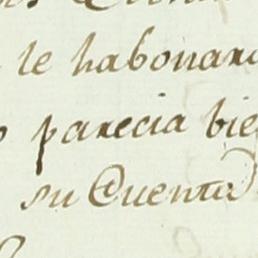 le habonara
parecia bie
su Cuenta